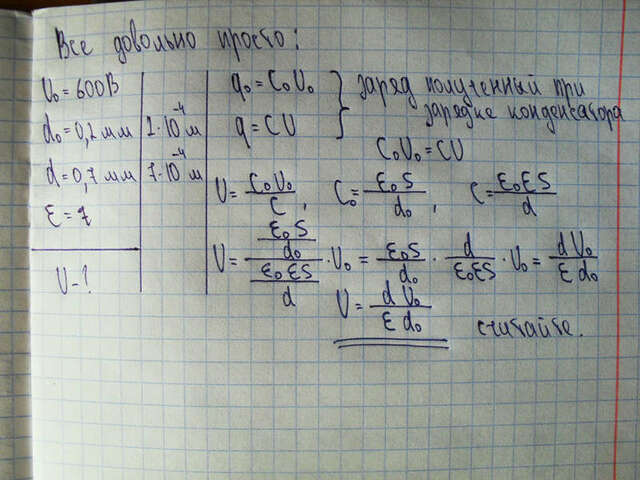 Все довольно просто:
U₀ = 600В
d₀ = 0,2 мм | 2·10⁻⁴ м
d = 0,7 мм | 7·10⁻⁴ м
ε = 7
U - ?
q₀ = C₀U₀
q = CU
} заряд полученный при
зарядке конденсатора
C₀U₀ = CU
U = C₀U₀/C, C₀ = ε₀S/d₀, C = ε₀εS/d
U = (ε₀S/d₀)/(ε₀εS/d) · U₀ = ε₀S/d₀ · d/ε₀εS · U₀ = dU₀/εd₀
U = dU₀/εd₀
считайте.